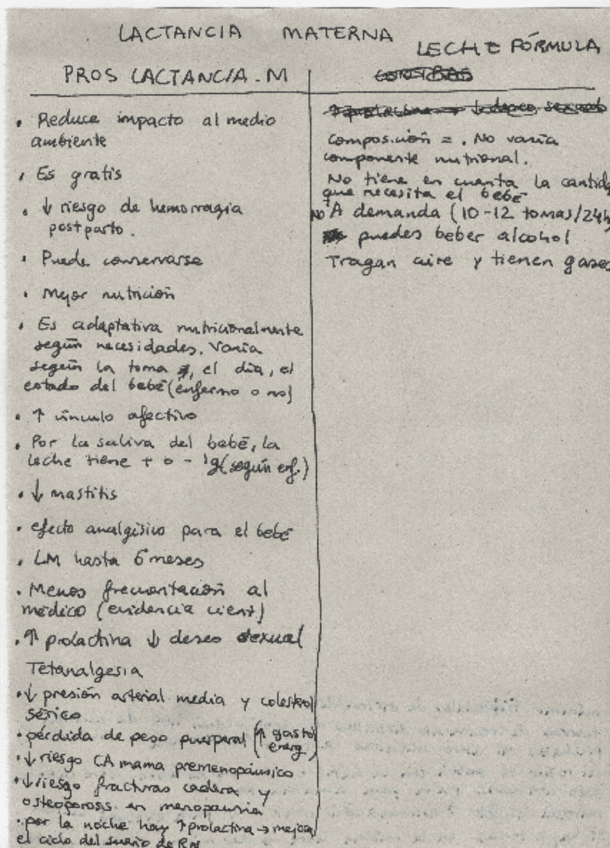 LACTANCIA MATERNA
LECHE FÓRMULA
PROS LACTANCIA.M
• Reduce impacto al medio
ambiente
• Es gratis
• ↓ riesgo de hemorragia
postparto.
• Puede conservarse
• Mejor nutrición
• Es adaptativa nutricionalmente
según necesidades. Varía
según la toma, el día, el
estado del bebé (enfermo o no)
• ↑ vínculo afectivo
• Por la saliva del bebé, la
leche tiene + o - Ig (según enf.)
• ↓ mastitis
• efecto analgésico para el bebé
• LM hasta 6 meses
• Menos frecuentación al
médico (evidencia cient)
• ↑ prolactina ↓ deseo sexual
Tetanalgesia
• ↓ presión arterial media y colesterol
sérico
• pérdida de peso puerperal (↑ gasto
energ.)
• ↓ riesgo CA mama premenopáusico
• ↓ riesgo fracturas cadera y
osteoporosis en menopausia
• por la noche hay ↑ prolactina → mejora
el ciclo del sueño de RN
↑ prolactina → ↓ deseo sexual
composición = . No varía
componente nutricional.
No tiene en cuenta la cantida
que necesita el bebé
NO A demanda (10-12 tomas/24h
puedes beber alcohol
Tragan aire y tienen gases